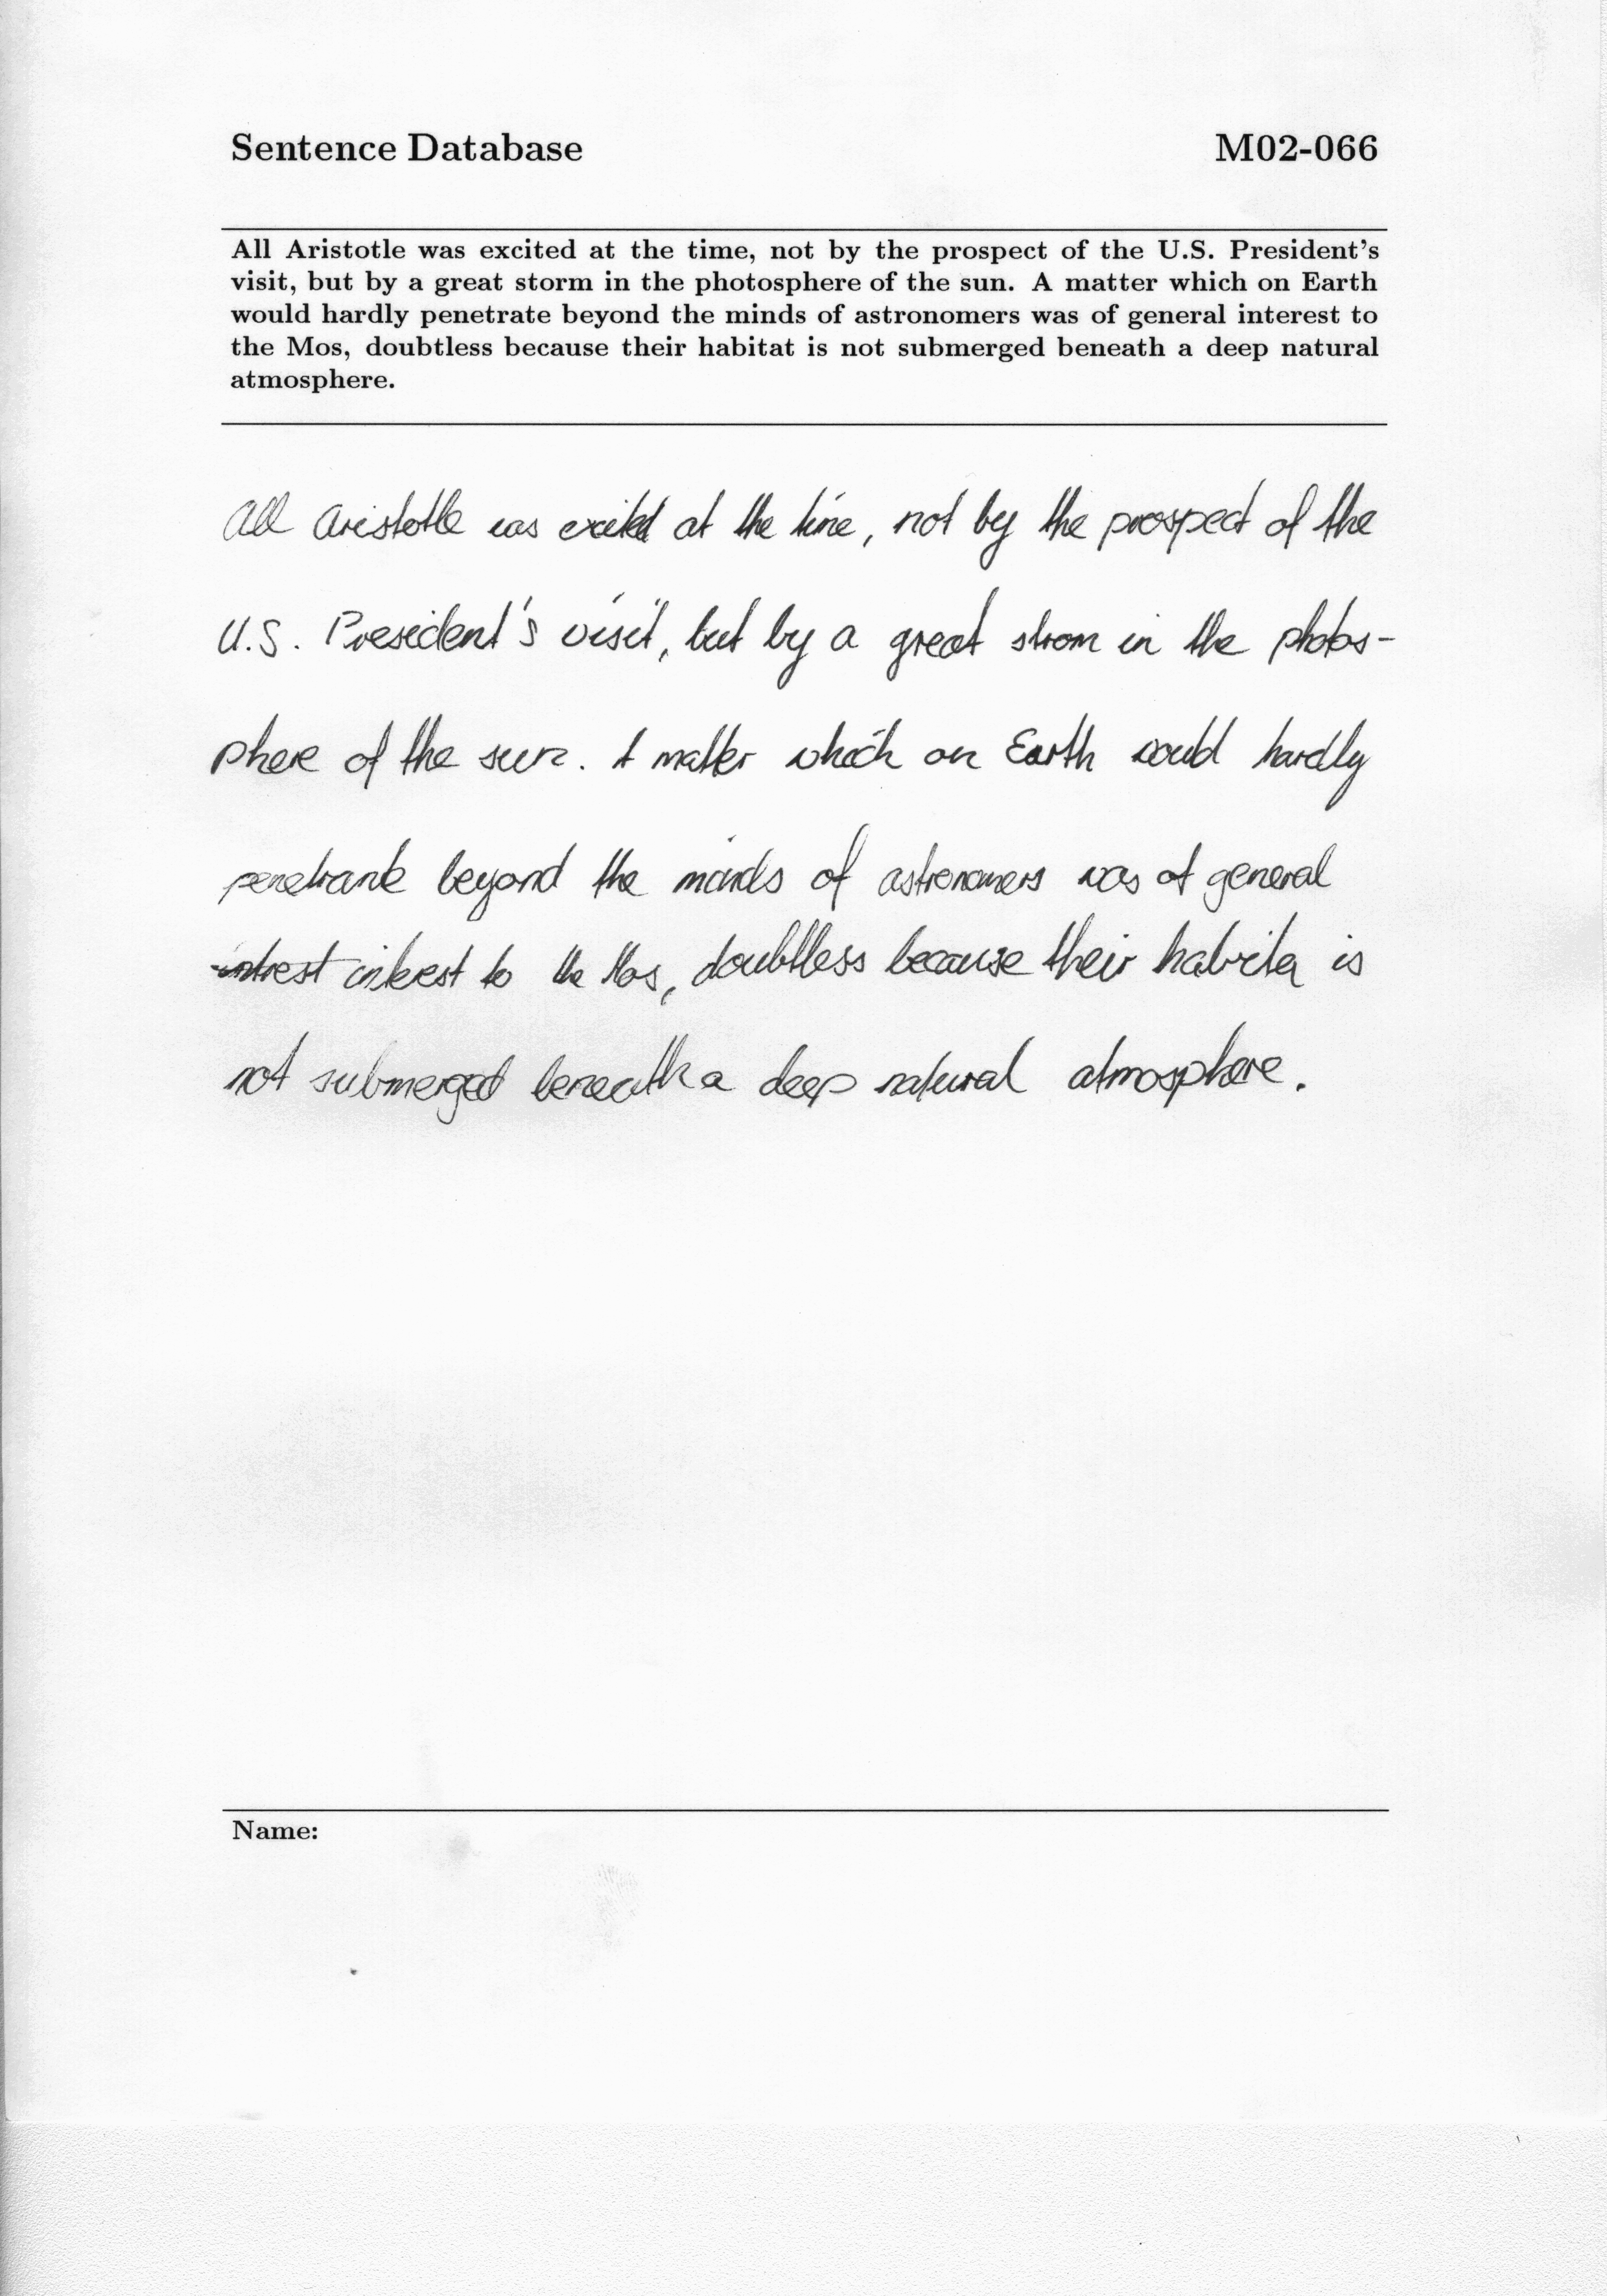 Sentence Database M02-066
All Aristotle was excited at the time, not by the prospect of the U.S. President's
visit, but by a great storm in the photosphere of the sun. A matter which on Earth
would hardly penetrate beyond the minds of astronomers was of general interest to
the Mos, doubtless because their habitat is not submerged beneath a deep natural
atmosphere.
All Aristotle was excited at the time, not by the prospect of the
U.S. President's visit, but by a great strom in the photos-
phere of the sun. A matter which on Earth would hardly
penetrante beyond the minds of astronomers was of general
intrest interest to the Mos, doubtless because their habita is
not submerged beneath a deep natural atmosphere.
Name: